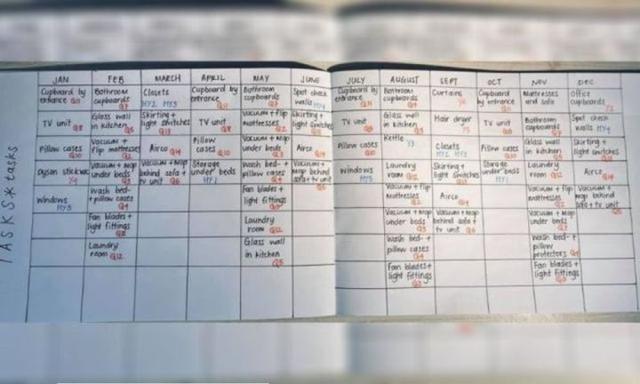 TASKS * tasks
JAN FEB MARCH APRIL MAY JUNE JULY AUGUST SEPT OCT NOV DEC
Cupboard by entrance Q11
Bathroom cupboards Q7
Closets HY2 HY3
Cupboard by entrance Q11
Bathroom cupboards Q7
Spot check walls HY4
Cupboard by entrance Q11
Bathroom cupboards
Curtains
Cupboard by entrance Q11
Mattresses and sofa
Office cupboards
TV unit Q8
Glass wall in kitchen
Skirting + light switches
TV unit Q8
Vacuum + flip mattresses
Skirting + light switches
TV unit Q8
Glass wall in kitchen
Hair dryer
TV unit Q8
Bathroom cupboards
Spot check walls HY4
Pillow cases Q10
Vacuum + flip mattresses
Airco Q14
Pillow cases Q10
Vacuum + mop under beds
Airco Q14
Pillow cases Q10
Kettle Y3
Closets HY2 HY3
Pillow cases Q10
Glass wall in kitchen
Skirting + light switches
Dyson stick vac
Vacuum + mop under beds
Vacuum + mop behind sofa + tv unit Q6
Storage under beds HY1
Wash bed- + pillow cases
Vacuum + mop behind sofa + tv unit
Windows HY5
Laundry room Q12
Skirting + light switches
Storage under beds HY1
Laundry room Q12
Airco Q14
Windows HY5
Wash bed- + pillow cases
Fan blades + light fittings
Vacuum + flip mattresses
Airco Q14
Vacuum + flip mattresses
Vacuum + mop behind sofa + tv unit
Fan blades + light fittings
Laundry room
Vacuum + mop under beds
Vacuum + mop behind sofa + tv unit Q6
Vacuum + mop under beds
Laundry room Q12
Glass wall in kitchen
Wash bed- + pillow cases
Wash bed- + pillow protectors
Fan blades + light fittings
Fan blades + light fittings